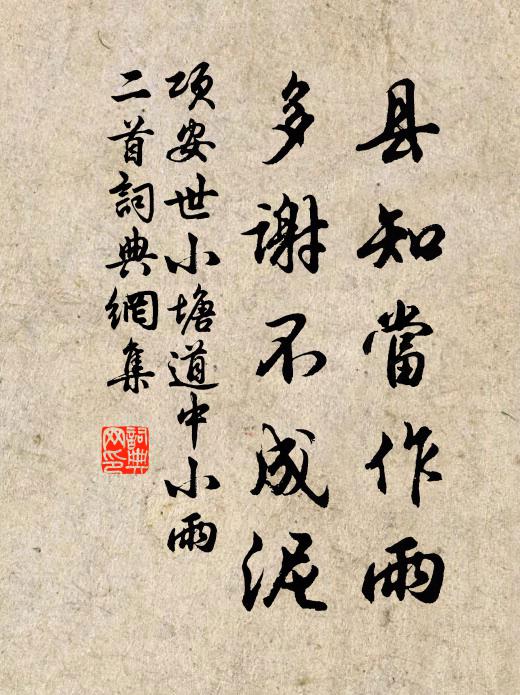 县知當作雨
多谢不成泥
项安世小塘道中小雨
二首詞典網集
詞典
网印